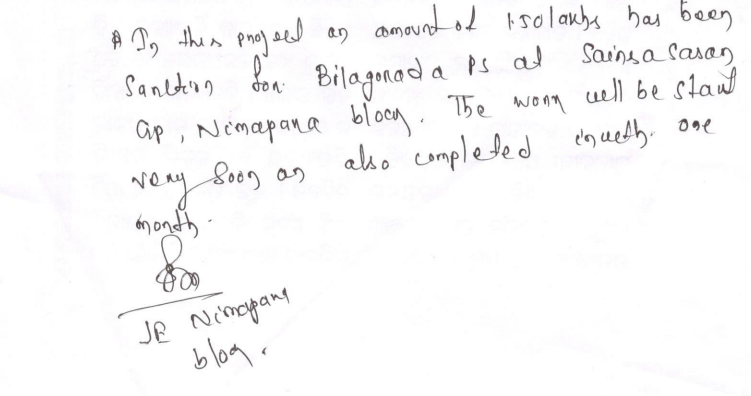 * In this project an amount of 1.50 lakhs has been
Sanction for Bilagonada Ps at Sainsasasan
Gp, Nimapana block. The work will be start
very soon an also completed inweth. one
month.
JE Nimapana
block.